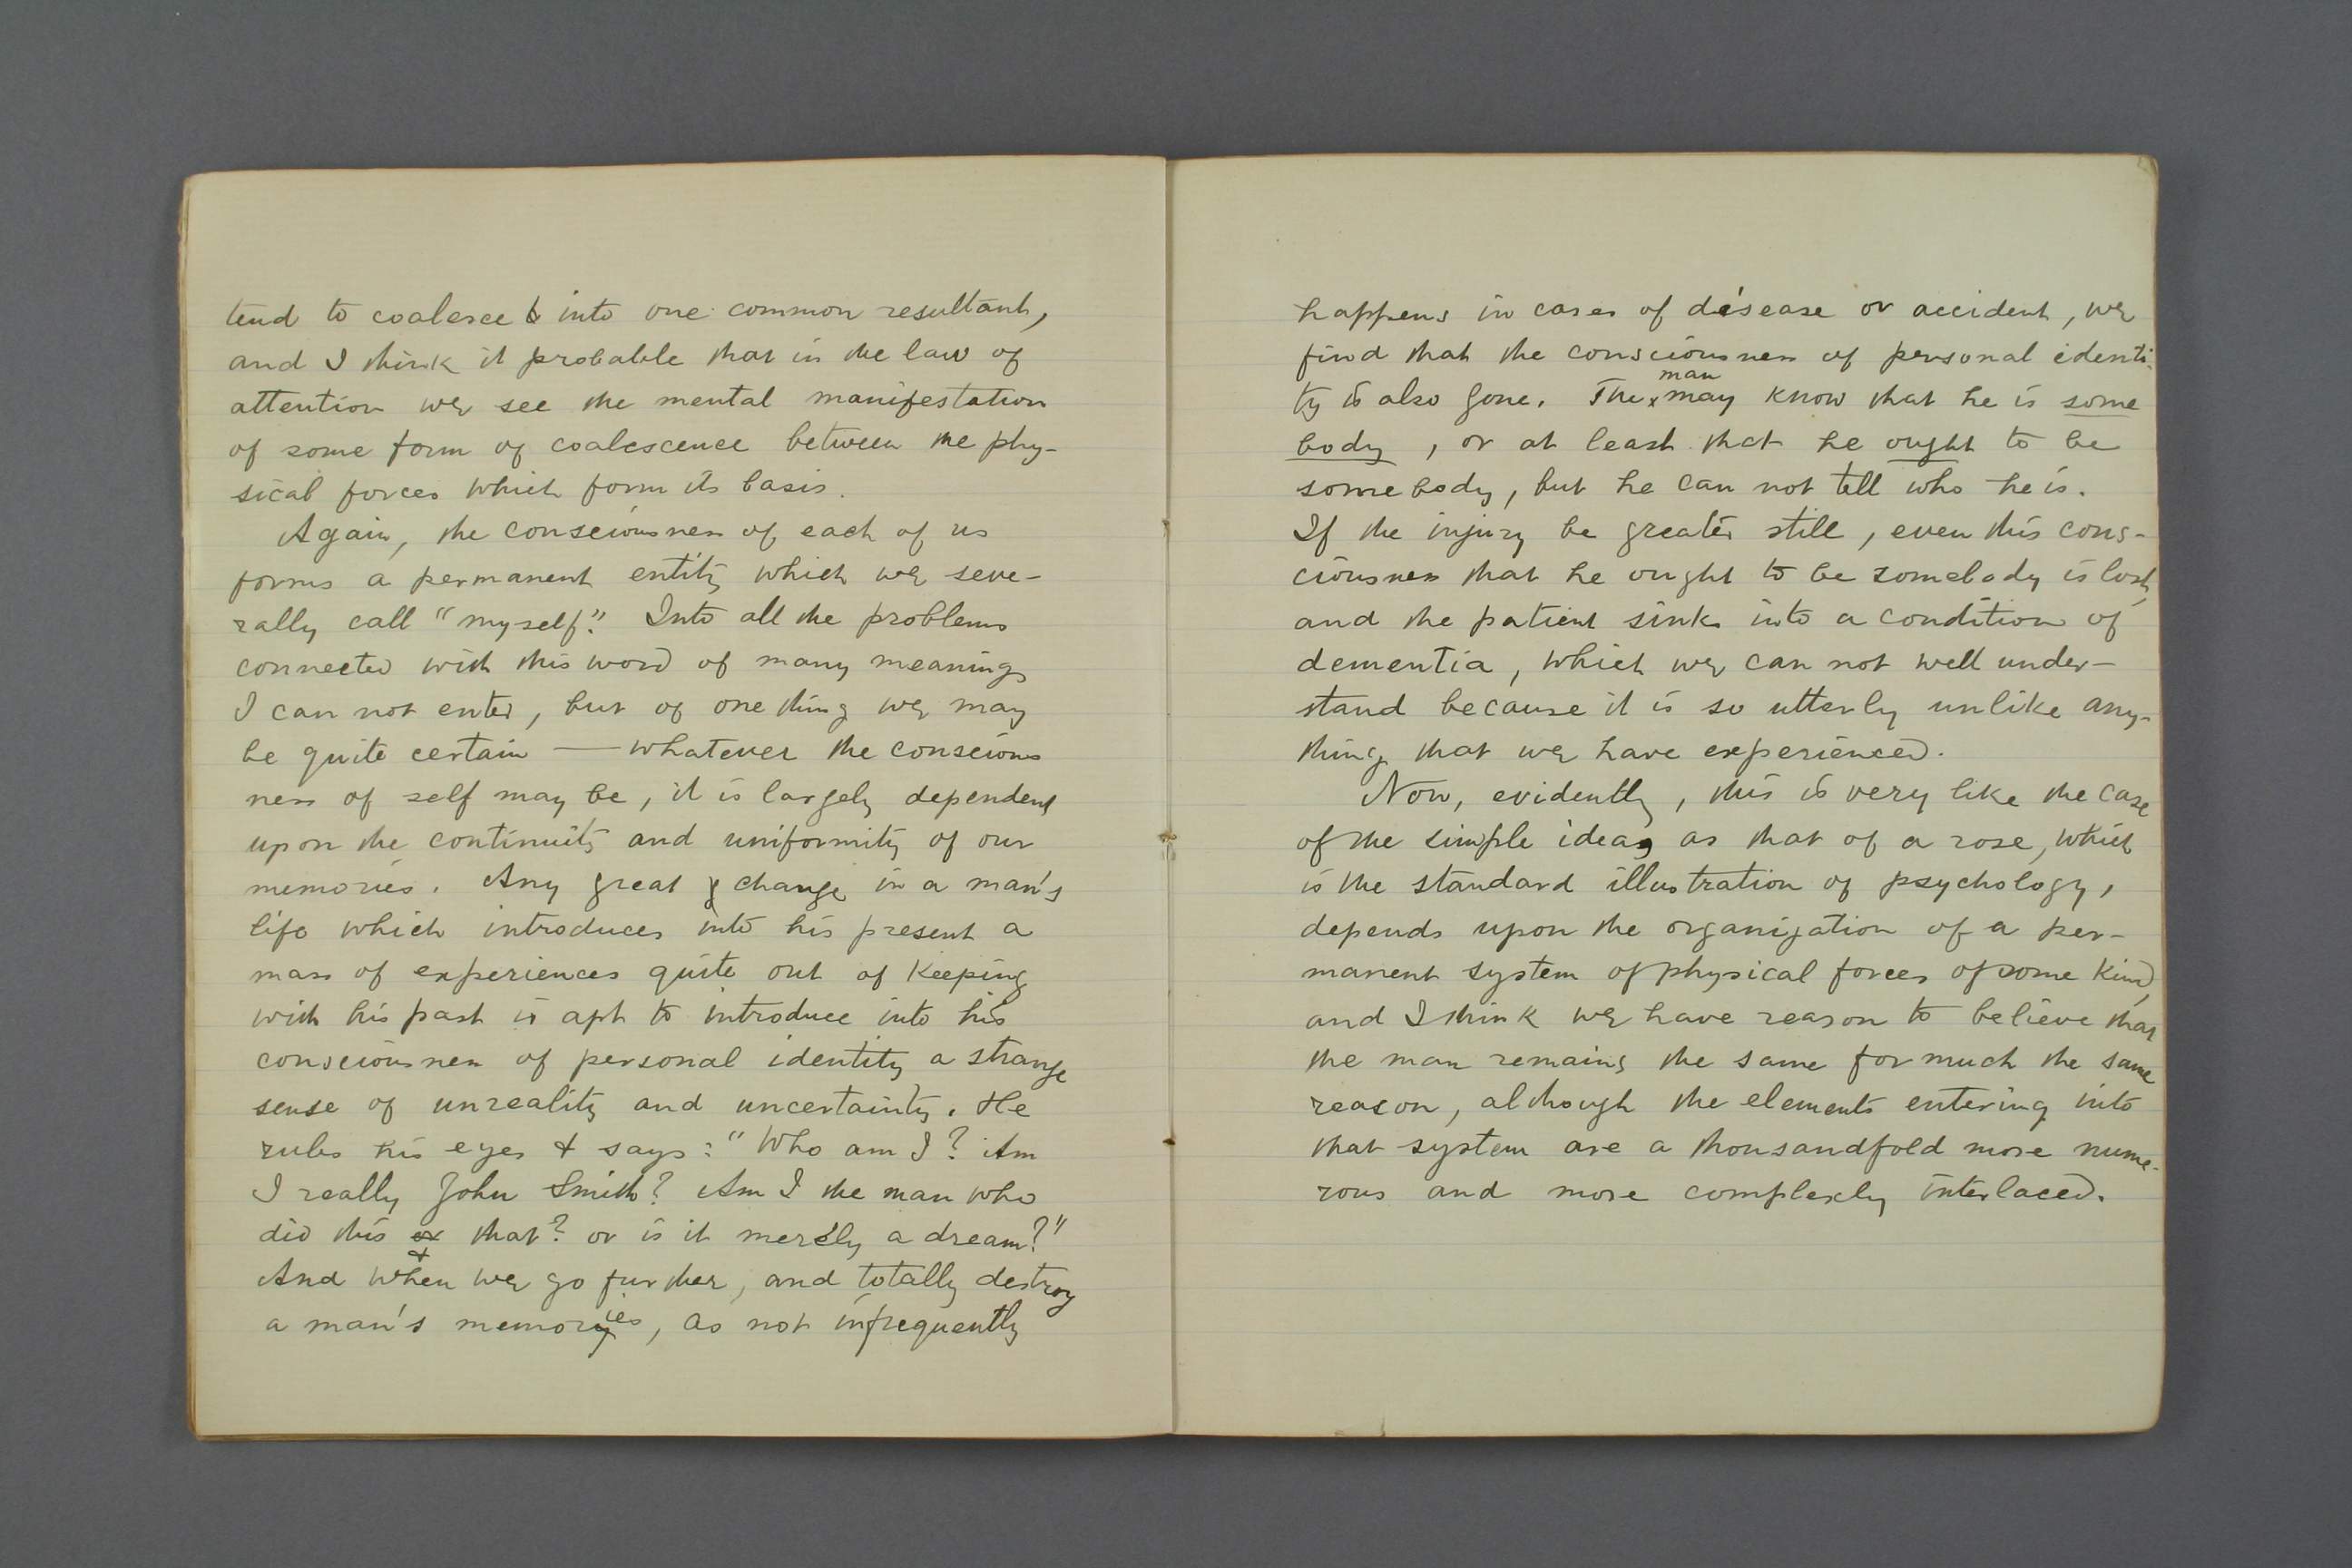 tend to coalesce & into one common resultant,
and I think it probable that in the law of
attention we see the mental manifestation
of some form of coalescence between the phy-
sical forces which form its basis.
Again, the consciousness of each of us
forms a permanent entity which we seve-
rally call "myself." Into all the problems
connected with this word of many meanings
I can not enter, but of one thing we may
be quite certain — whatever the conscious
ness of self may be, it is largely dependent
upon the continuity and uniformity of our
memories. Any great change in a man's
life which introduces into his present a
mass of experiences quite out of keeping
with his past is apt to introduce into his
consciousness of personal identity a strange
sense of unreality and uncertainty. He
rubs his eyes & says: "Who am I? Am
I really John Smith? Am I the man who
did this or & that? or is it merely a dream?"
And when we go further, and totally destroy
a man's memories, as not infrequently
happens in cases of disease or accident, we
find that the consciousness of personal identi-
ty is also gone. The man may know that he is some
body, or at least that he ought to be
somebody, but he can not tell who he is.
If the injury be greater still, even this cons-
ciousness that he ought to be somebody is lost,
and the patient sinks into a condition of
dementia, which we can not well under-
stand because it is so utterly unlike any-
thing that we have experienced.
Now, evidently, this is very like the case
of the simple idea, as that of a rose, which
is the standard illustration of psychology,
depends upon the organization of a per-
manent system of physical forces of some kind,
and I think we have reason to believe that
the man remains the same for much the same
reason, although the elements entering into
that system are a thousandfold more nume-
rous and more complexly interlaced.